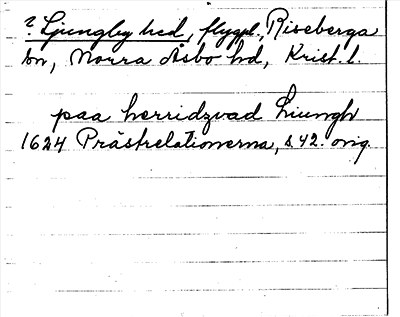 ? Ljungby hed, flygpl., Riseberga
sn, Norra Åsbo hd, Krist. l.
paa herridzvad Liungh
1624 Prästrelationerna, s. 42. orig.